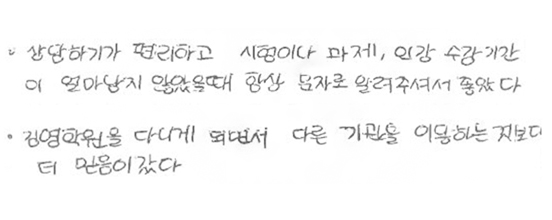 • 상담하기가 편리하고 시험이나 과제, 인강 수강기간
이 얼마남지 않았을때 항상 문자로 알려주셔서 좋았다
• 김영학원을 다니게 되면서 다른 기관을 이용하는 것보다
더 믿음이 갔다